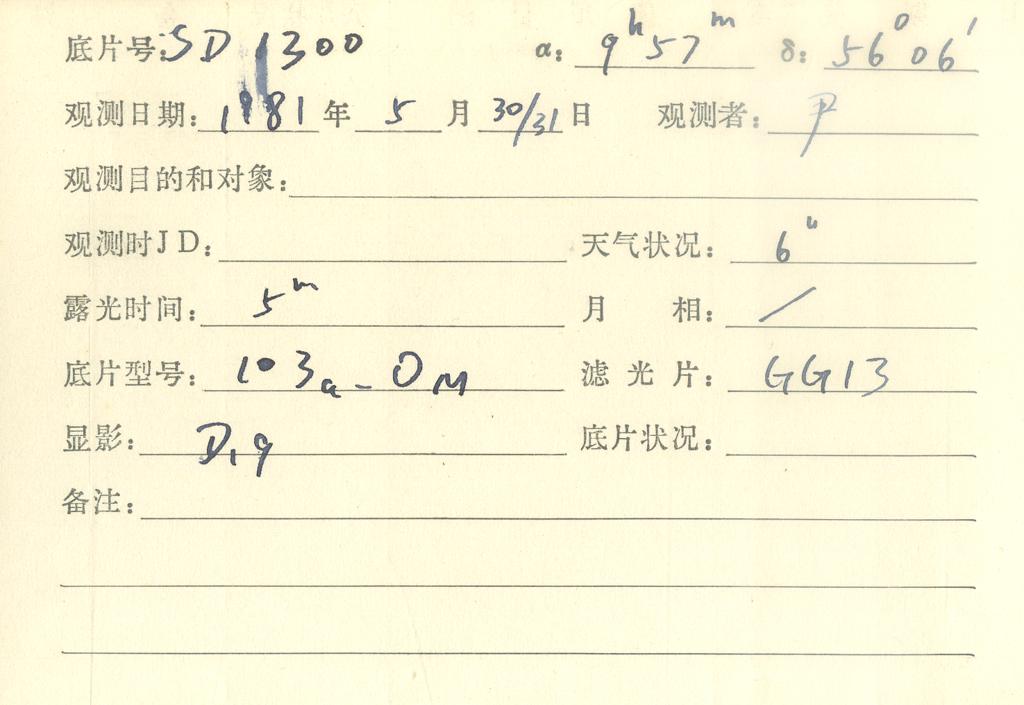 底片号:SD 1300 α: 9h57m δ: 56°06′
观测日期: 1981年 5 月 30/31 日 观测者: 尹
观测目的和对象:
观测时JD: 天气状况: 6"
露光时间: 5m 月 相: /
底片型号: 103a-OM 滤 光 片: GG13
显影: D19 底片状况:
备注: